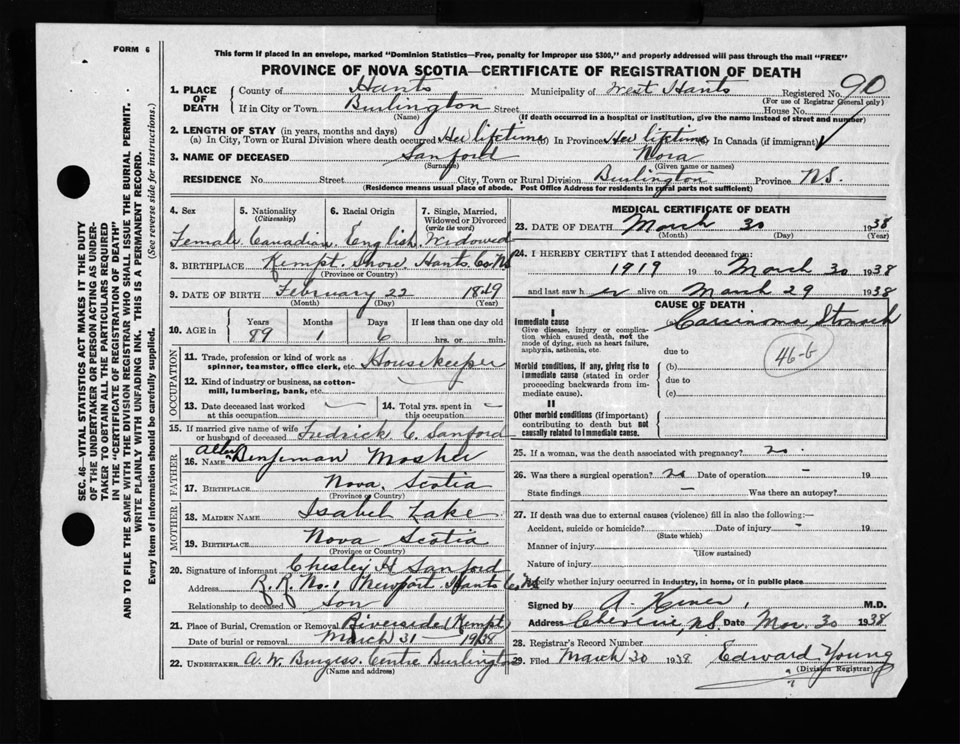 FORM 6
This form if placed in an envelope, marked "Dominion Statistics—Free, penalty for improper use $300," and properly addressed will pass through the mail "FREE"
PROVINCE OF NOVA SCOTIA—CERTIFICATE OF REGISTRATION OF DEATH
1. PLACE OF DEATH
County of Hants Municipality of West Hants Registered No. 90
(For use of Registrar General only)
If in City or Town Burlington Street House No.
(Name) (If death occurred in a hospital or institution, give the name instead of street and number)
2. LENGTH OF STAY (in years, months and days)
(a) In City, Town or Rural Division where death occurred Her lifetime (b) In Province Her lifetime (c) In Canada (if immigrant)
3. NAME OF DECEASED Sanford Nora
(Surname) (Given name or names)
RESIDENCE No. Street City, Town or Rural Division Burlington Province N.S.
(Residence means usual place of abode. Post Office Address for residents in rural parts not sufficient)
SEC. 46—VITAL STATISTICS ACT MAKES IT THE DUTY
OF THE UNDERTAKER OR PERSON ACTING AS UNDER-
TAKER TO OBTAIN ALL THE PARTICULARS REQUIRED
IN THE "CERTIFICATE OF REGISTRATION OF DEATH"
AND TO FILE THE SAME WITH THE DIVISION REGISTRAR WHO SHALL ISSUE THE BURIAL PERMIT.
WRITE PLAINLY WITH UNFADING INK. THIS IS A PERMANENT RECORD.
Every item of information should be carefully supplied. (See reverse side for instructions.)
4. Sex 5. Nationality (Citizenship) 6. Racial Origin 7. Single, Married, Widowed or Divorced (write the word)
Female Canadian English Widowed
8. BIRTHPLACE Kempt Shore Hants Co NS
(Province or Country)
9. DATE OF BIRTH February 22 1849
(Month) (Day) (Year)
10. AGE in Years Months Days If less than one day old
89 1 6 hrs. or min.
OCCUPATION
11. Trade, profession or kind of work as spinner, teamster, office clerk, etc. Housekeeper
12. Kind of industry or business, as cotton-mill, lumbering, bank, etc.
13. Date deceased last worked at this occupation — 14. Total yrs. spent in this occupation —
15. If married give name of wife or husband of deceased Fredrick C. Sanford
FATHER
16. Name Allen Benjeman Mosher
17. BIRTHPLACE Nova Scotia
(Province or Country)
MOTHER
18. MAIDEN NAME Isabel Lake
19. BIRTHPLACE Nova Scotia
(Province or Country)
20. Signature of informant Chesley H Sanford
Address R.R. No. 1 Newport Hants Co. NS
Relationship to deceased son
21. Place of Burial, Cremation or Removal Riverside (Kempt)
Date of burial or removal March 31 — 1938
22. UNDERTAKER A. W. Burgess. Centre Burlington
(Name and address)
MEDICAL CERTIFICATE OF DEATH
23. DATE OF DEATH March 30 1938
(Month) (Day) (Year)
24. I HEREBY CERTIFY that I attended deceased from:
1919 19 to March 30 1938
and last saw her alive on March 29 1938
CAUSE OF DEATH
I
Immediate cause Carcinoma Stomach
Give disease, injury or complication which caused death, not the mode of dying, such as heart failure, asphyxia, asthenia, etc.
due to
46-b
Morbid conditions, if any, giving rise to immediate cause (stated in order proceeding backwards from immediate cause).
(b)
due to
(c)
II
Other morbid conditions (if important) contributing to death but not causally related to immediate cause.
25. If a woman, was the death associated with pregnancy? no.
26. Was there a surgical operation? no Date of operation — 19
State findings — Was there an autopsy?
27. If death was due to external causes (violence) fill in also the following:
Accident, suicide or homicide? Date of injury — 19
(State which)
Manner of injury
(How sustained)
Nature of injury
Specify whether injury occurred in industry, in home, or in public place
Signed by A. M.D.
Address Cheverie, N.S. Date Mar. 30 1938
28. Registrar's Record Number
29. Filed March 30 1938 Edward Young
(Division Registrar)